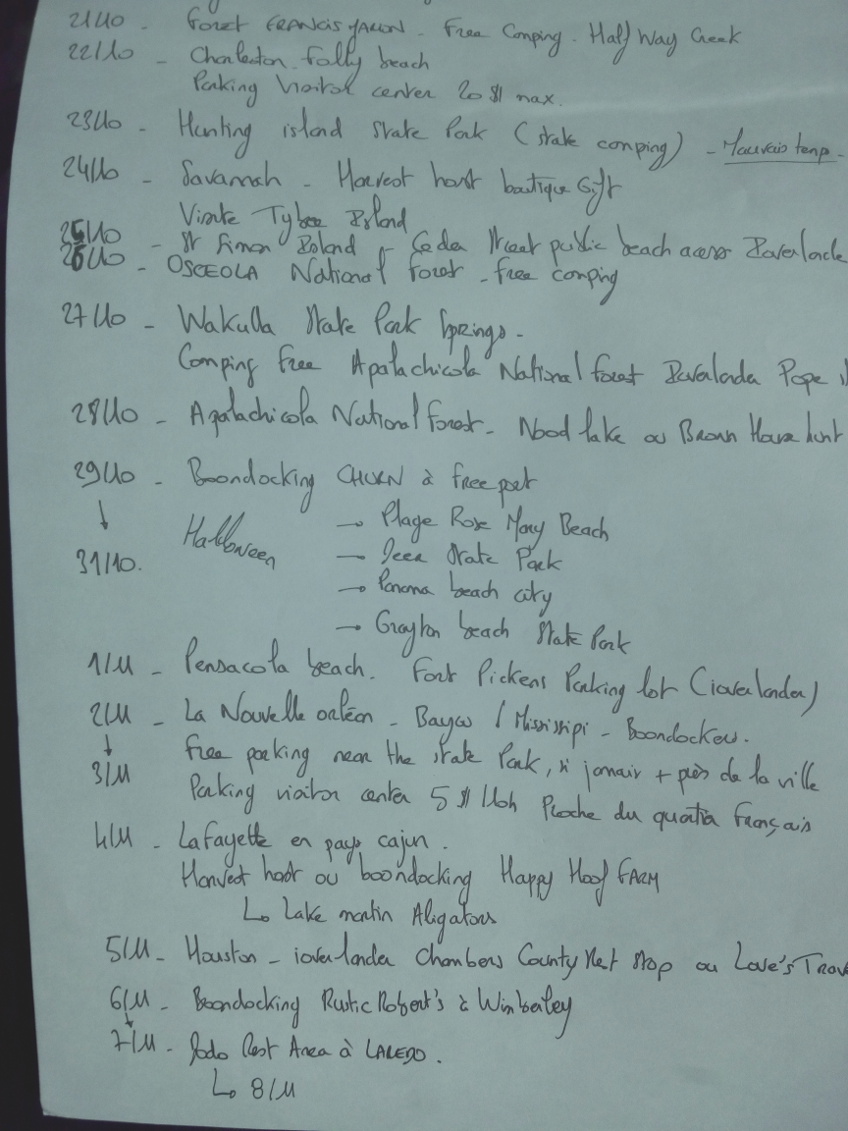 21/10 - Foret FRANCIS MARION - Free Camping - Half Way Creek
22/10 - Charleston - Folly beach
Parking Visitor center 20 $ max.
23/10 - Hunting island State Park (state camping) - Mauvais temp -
24/10 - Savannah - Harvest host boutique Gift
Visite Tybee Island
25/10 - St Simon Island - Cedar Street public beach access Ioverlande
26/10 - OSCEOLA National Forest - free camping
27/10 - Wakulla State Park Springs -
Camping free Apalachicola National forest Ioverlanda Pope
28/10 - Apalachicola National Forest - Wood lake ou Brown House hunt
29/10 - Boondocking CHURN à freeport
↓ Halloween → Plage Rose Mary Beach
31/10. → Deer State Park
→ Panama beach city
→ Grayton beach State Park
1/11 - Pensacola beach. Fort Pickens Parking lot (ioverlander)
2/11 - La Nouvelle orléan - Bayou / Mississipi - Boondockers.
↓ Free parking near the state Park, si jamais + près de la ville
3/11 Parking visitor center 5 $ 10h Proche du quartier Français
4/11 - Lafayette en pays cajun.
Harvest host ou boondocking Happy Hoof FARM
↳ Lake martin Aligators
5/11 - Houston - ioverlander Chambers County Net Stop ou Love's Trav
6/11 - Boondocking Rustic Robert's à Wimberley
↓
7/11 - Rest Area à LAREDO.
↳ 8/11